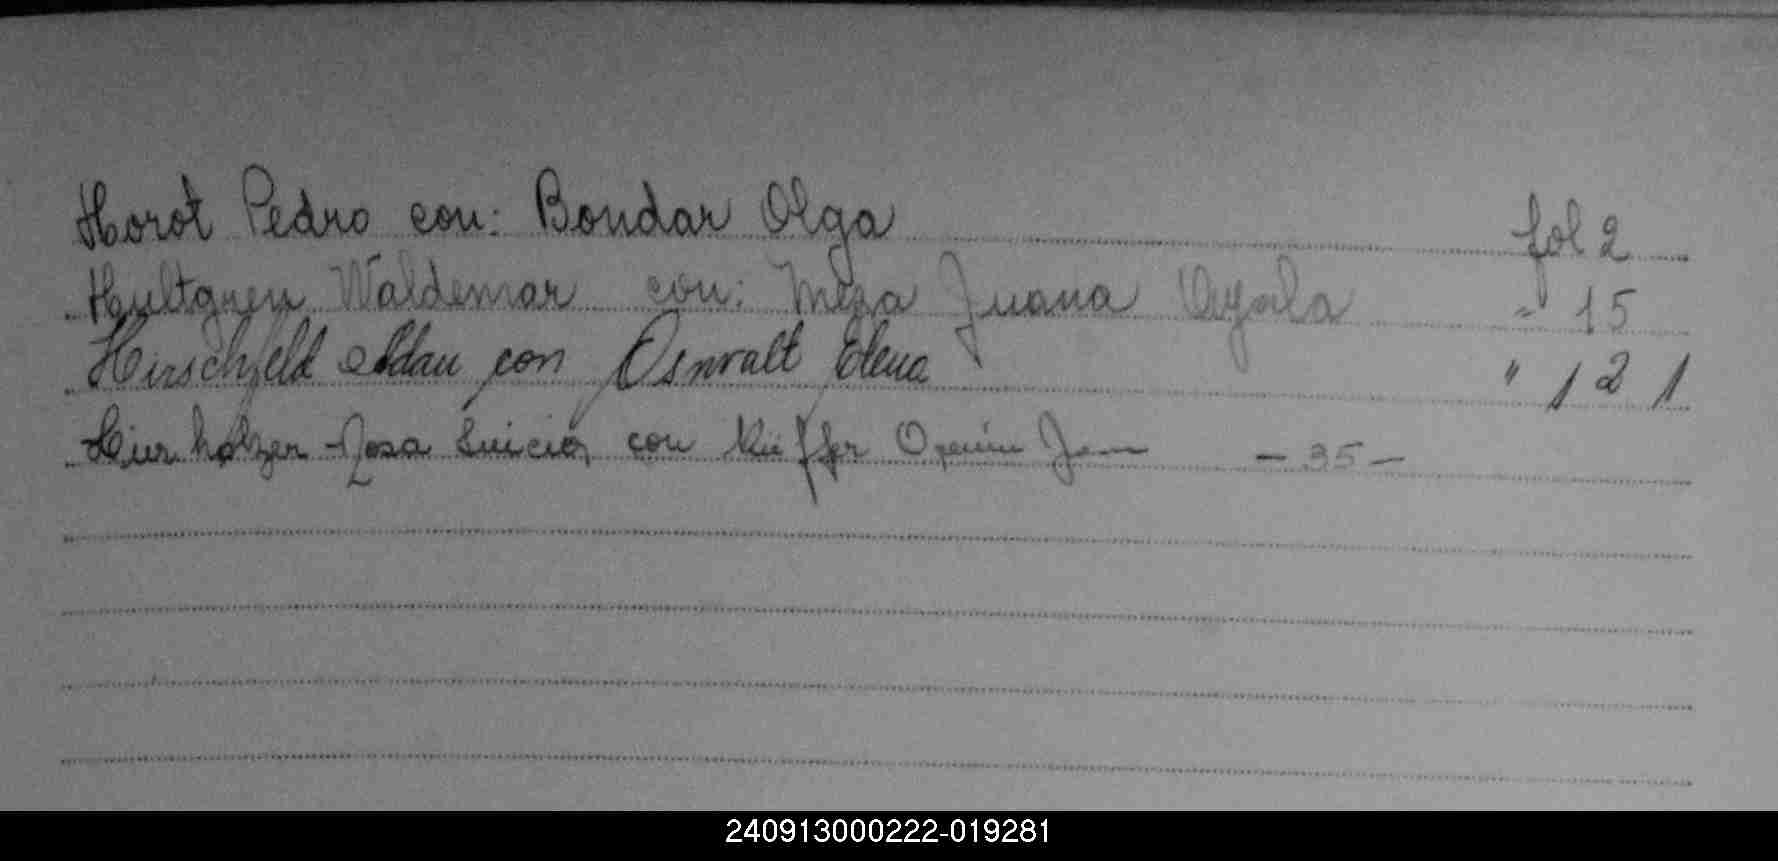 Horot Pedro con: Bondar Olga fol 2
Hultgren Waldemar con: Meza Juana Ayala " 15
Hirschfeld Adan con Oswalt Elena " 121
Hierholzer Rosa con - 35 -
240913000222-019281